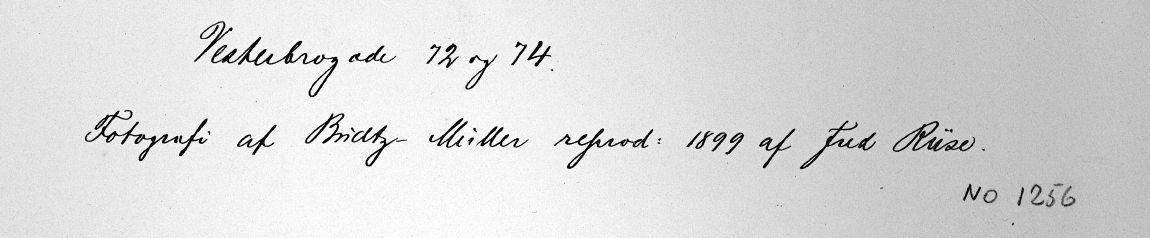 Vesterbrogade 72 og 74.
Fotografi af Budtz-Müller reprod: 1899 af Fred Riise.
No 1256